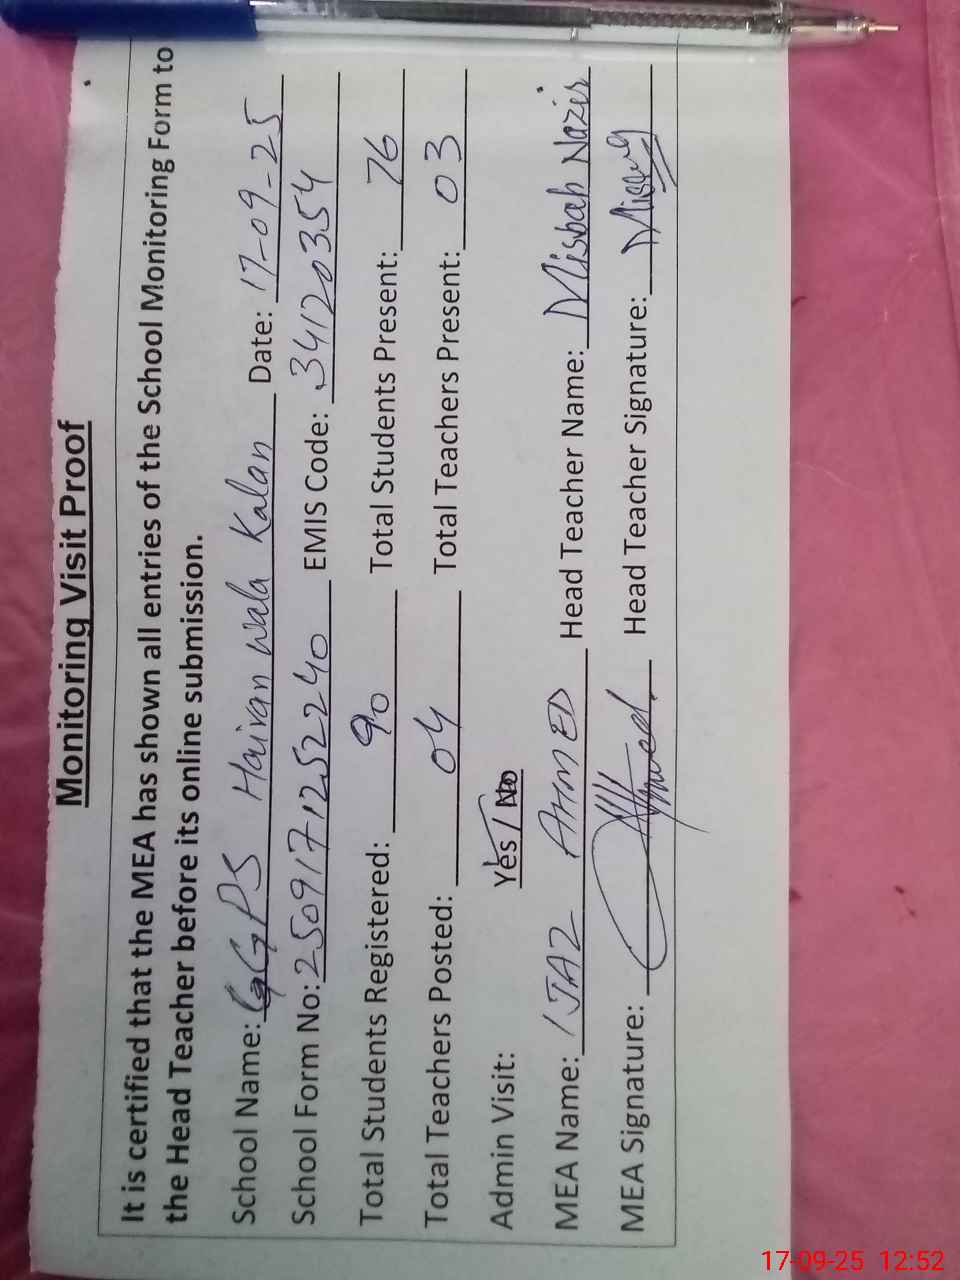 Monitoring Visit Proof
It is certified that the MEA has shown all entries of the School Monitoring Form to
the Head Teacher before its online submission.
School Name: GGPS Haivan Wala Kalan Date: 17-09-25
School Form No: 2509171252240 EMIS Code: 34120354
Total Students Registered: 90 Total Students Present: 76
Total Teachers Posted: 04 Total Teachers Present: 03
Admin Visit: Yes / No
MEA Name: IJAZ AHMED Head Teacher Name: Misbah Nazir
MEA Signature: Head Teacher Signature:
17-09-25 12:52